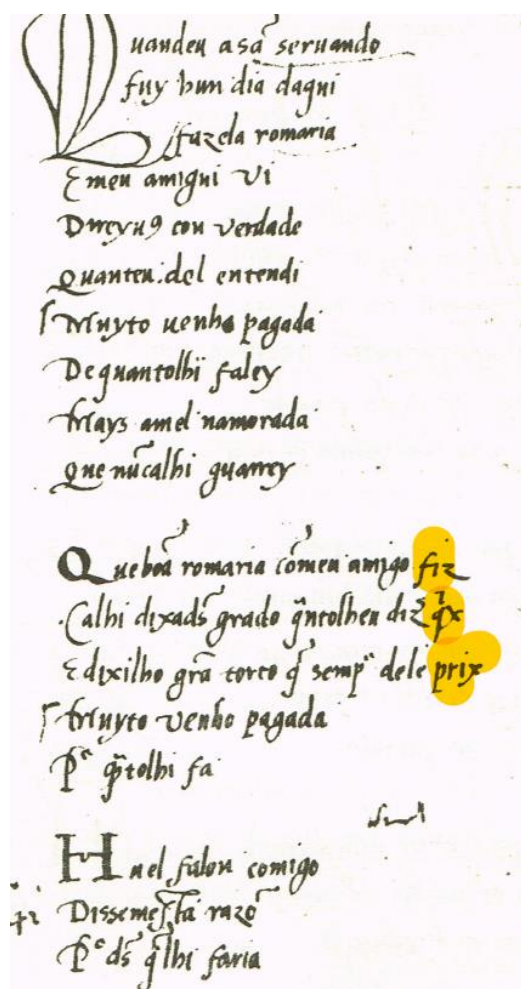 Quandeu a sã seruando
fuy hun dia daqui
fazela romaria
E meu amigui vi
Direyuꝯ con verdade
Quanteu del entendi
Muyto uenho pagada
De quantolhi faley
Mays amel namorada
Que nũcalhi guarrey
Que boã romaria cõ meu amigo fiz
Calhi dixa ds̃ grado qñtolheu diz
E dixilho grã torto q̃ semp̃ dele prix
Muyto venho pagada
De q̃tolhi fa
H uel falou comigo
Disseme razõ
ds̃ q̃lhi faria